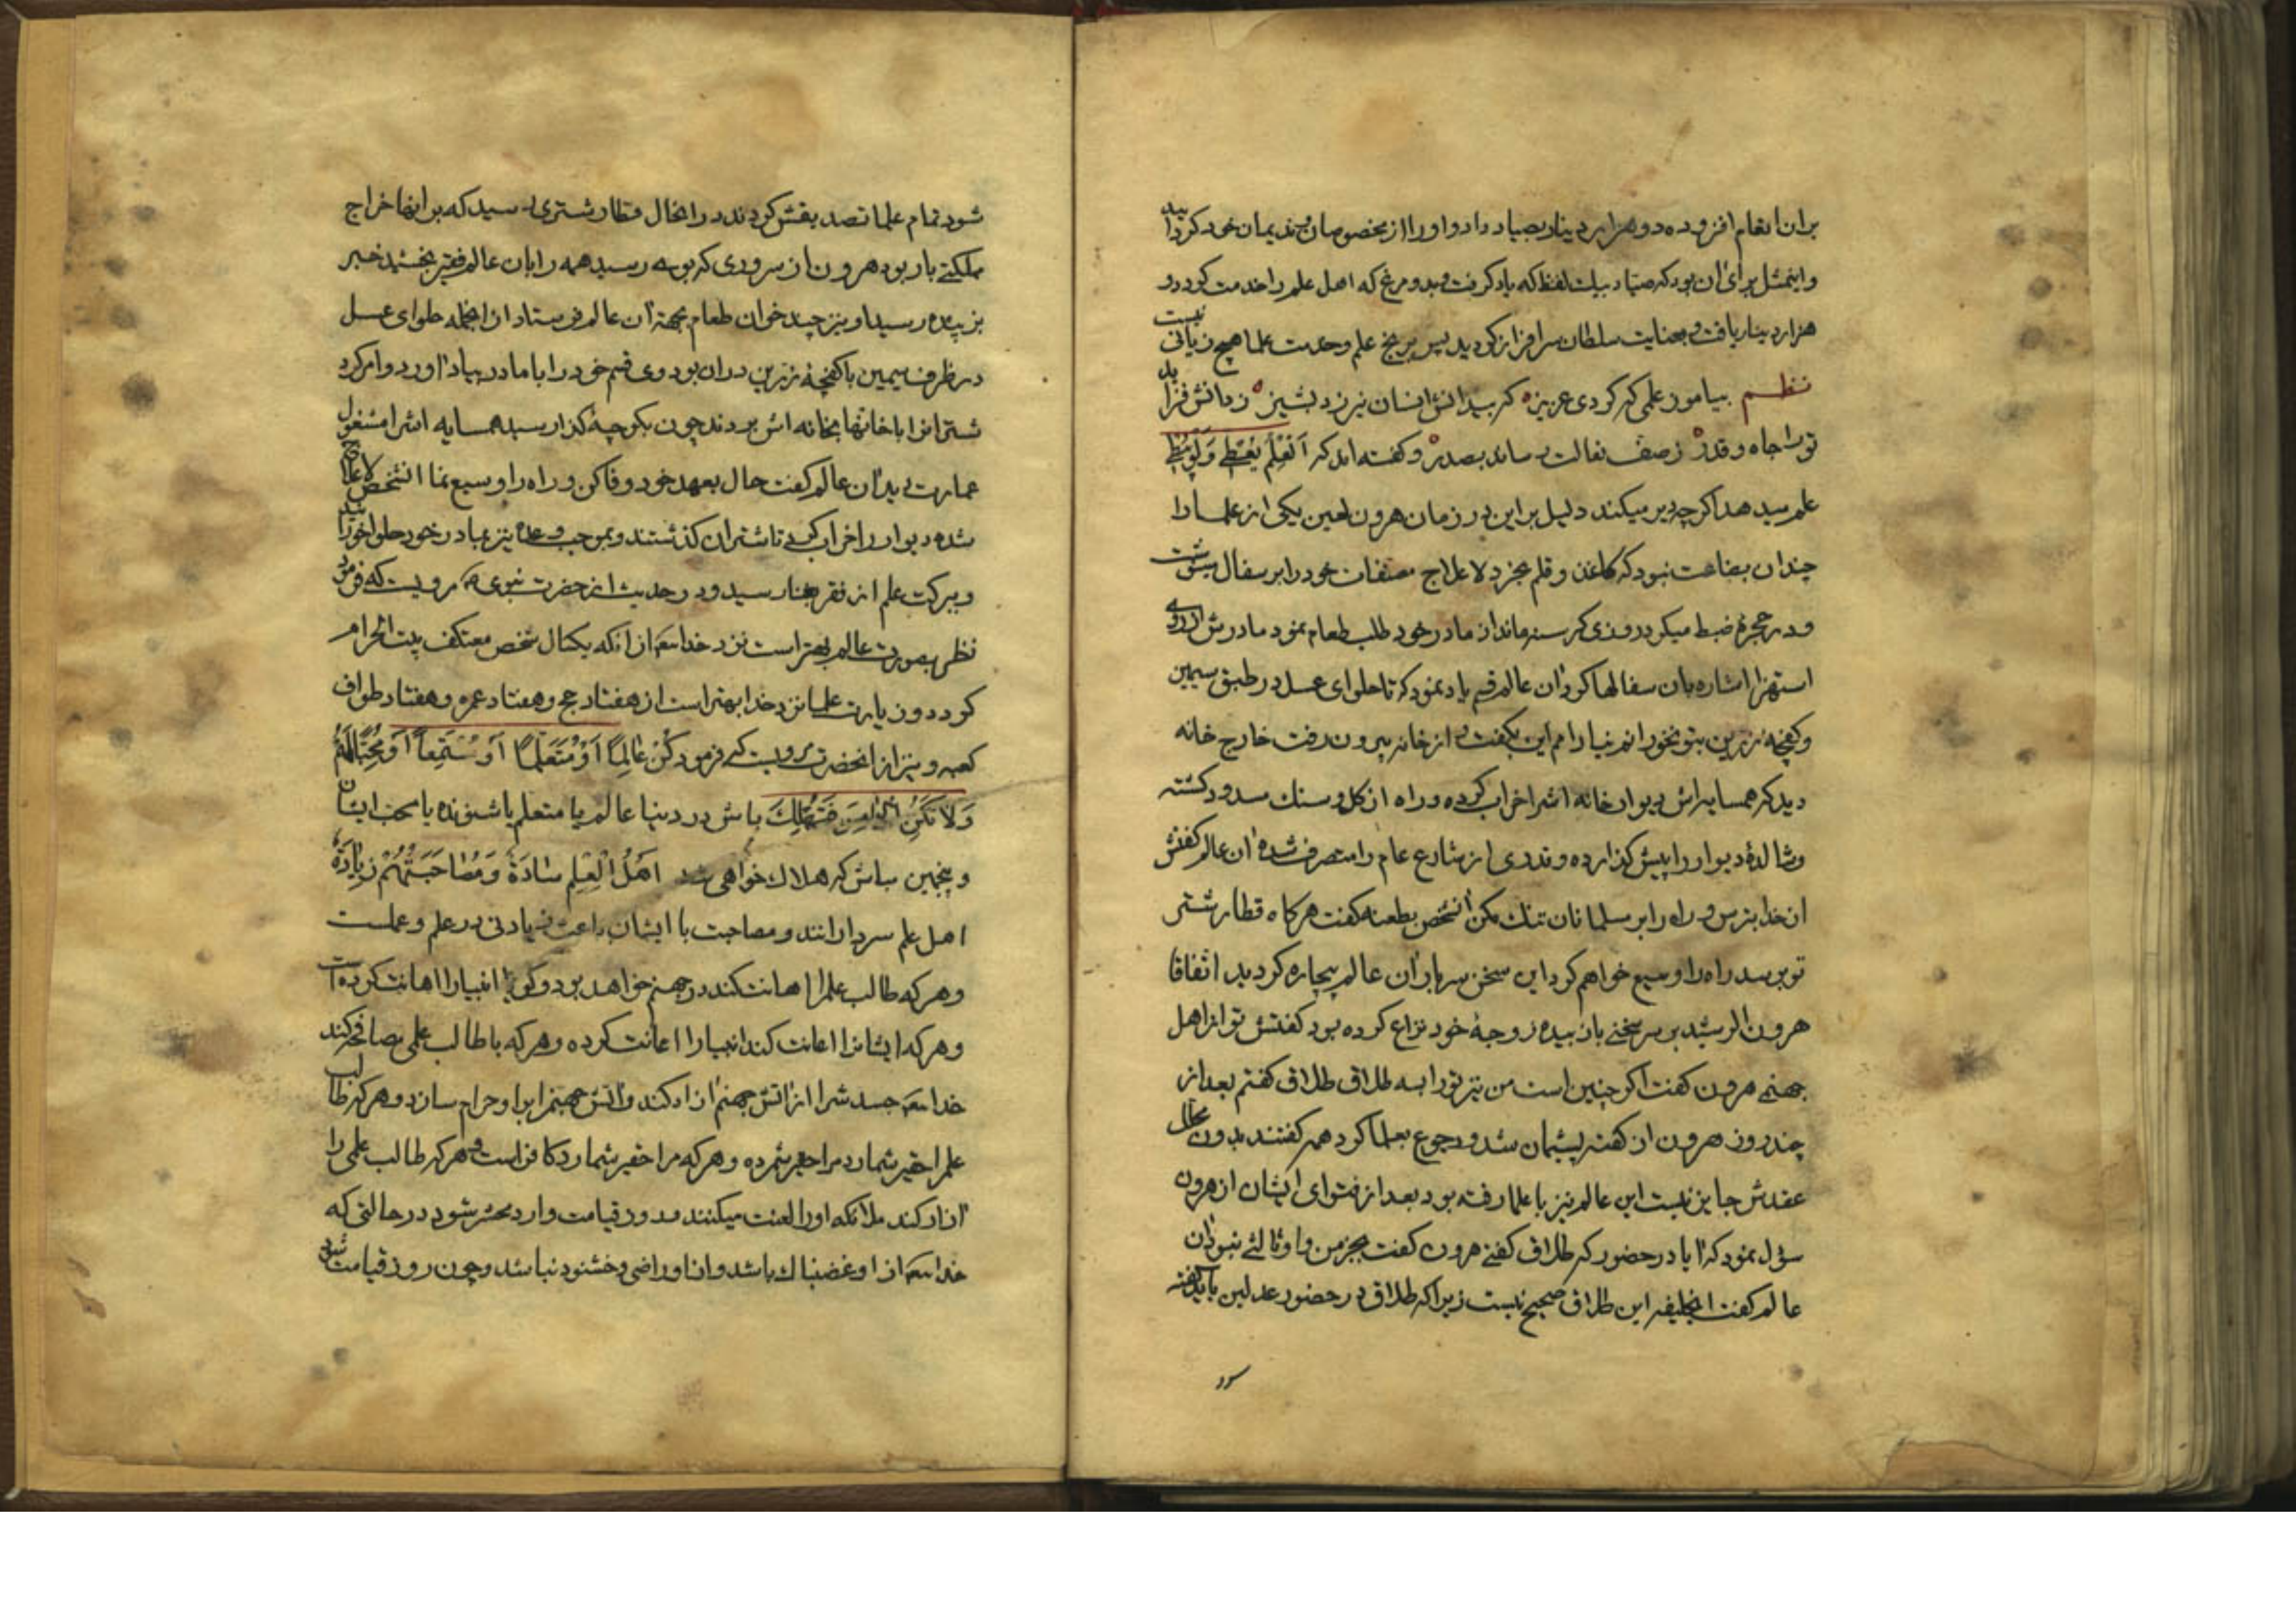 بران انعام افزوده دو هزار دینار بصیاد داد و او را از مخصوصان و ندیمان خود کردانید
و اینمثل برای ان بود که صیاد بیک لفظ که یاد کرفت و بدو مرغ که اهل علم را خدمت کرد دو
هزار دینار یافت و بعنایت سلطان سرافراز کردید پس بر رنج علم و خدمت علما هیچ زیانی نیست
نظم بیاموز علمی که کردی عزیز که بیدانش انسان نیرزد بشیز ز دانش فزاید
ترا جاه و قدر ز صف نعالت رساند بصدر و کفته اند که العلم یعطی ولو یبطی
علم میدهد اکر چه دیر میکند دلیل بر این در زمان هرون لعین یکی از علما را
چندان بضاعت نبود که کاغذ و قلم بخرد لاعلاج مصنفات خود را بر سفال مینوشت
و در حجرهٔ ضبط میکرد روزی کرسنه ماند از مادر خود طلب طعام نمود مادرش از روی
استهزا اشاره بان سفالها کرد ان عالم قسم یاد نمود که تا حلوای عسل در طبق سیمین
و کفچه زرین بتو نخورانم نیارامم این بکفت و از خانه بیرون رفت خارج خانه
دید که همسایه اش دیوار خانه اش را خراب کرده و راه از کل و سنک مسدود کشته
و شالدهٔ دیوار را پیش کذارده و قدری از شارع عام را متصرف شده ان عالم کفتش
از خدا بترس و راه را بر مسلمانان تنک مکن انشخص بطعنه کفت هر کاه قطار شتر
تو برسد راه را وسیع خواهم کرد این سخن سربار ان عالم بیچاره کردید اتفاقا
هرون الرشید بر سر سخنی با زبیده زوجهٔ خود نزاع کرده بود کفتش تو از اهل
جهنمی هرون کفت اکر چنین است من نیز تو را بسه طلاق طلاق کفتم بعد از
چند روز هرون از کفته پشیمان شد و رجوع بعلما کرد همه کفتند بدون محلل
عقدش جایز نیست این عالم نیز با علما رفته بود بعد از فتوای ایشان از هرون
سؤل نمود که ایا در حضور که طلاق کفتی هرون کفت بجز من و او ثالثی نبود ان
عالم کفت ایخلیفه این طلاق صحیح نیست زیرا که طلاق در حضور عدلین باید کفته
شود تمام علما تصدیقش کردند در انحال قطار شتری رسید که بر انها خراج
مملکتی بار بود هرون از سروری که بوی رسید همه را بان عالم فقیر بخشید خبر
بزبیده رسید او نیز چند خوان طعام بجهة ان عالم فرستاد از انجمله حلوای عسل
در ظرف سیمین با کفچهٔ زرین دران بود وی قسم خود را با مادر بیاد اورد و امر کرد
شترانرا با خانها بخانه اش بردند چون بکوچه کذار رسید همسایه اش را مشغول
عمارت دید ان عالم کفت حال بعهد خود وفا کن و راه را وسیع نما انشخص لاعلاج
شده دیوار را خراب کرد تا شتران کذشتند و بموجب وعده نیز بمادر خود حلوا خورانید
و ببرکت علم از فقر بغنا رسید و در حدیث از حضرت نبوی ص مرویست که فرمود
نظر بصورت عالم بهتر است نزد خدایتعه از انکه یکسال شخص معتکف بیت الحرام
کردد و زیارت علما نزد خدا بهتر است از هفتاد حج و هفتاد عمره و هفتاد طواف
کعبه و نیز از انحضرت مرویست که فرمود کُنْ عالِماً اَوْ مُتَعَلِّماً اَوْ مُسْتَمِعاً اَوْ مُحِبّاً لَهُمْ
وَلا تَکُنِ الخامِسَ فَتَهْلِکَ باش در دنیا عالم یا متعلم یا شنونده یا محب ایشان
و پنجمین مباش که هلاک خواهی شد اَهْلُ الْعِلْمِ سادَةٌ وَمُصاحَبَتُهُمْ زِیادَةٌ
اهل علم سردارانند و مصاحبت با ایشان باعث زیادتی در علم و عملست
و هر که طالب علم را اهانت کند در جهنم خواهد بود و کویا انبیا را اهانت کرده است
و هر که ایشانرا اعانت کند انبیا را اعانت کرده و هر که با طالب علمی مصافحه کند
خدایتعه جسدش را از اتش جهنم ازاد کند و اتش جهنم را بر او حرام سازد و هر که طالب
علم را حقیر شمارد مرا حقیر شمرده و هر که مرا حقیر شمارد کافر است و هر که طالب علمی را
ازار کند ملائکه او را لعنت میکنند و در قیامت وارد محشر شود در حالتی که
خدایتعه از او غضبناک باشد و از او راضی و خشنود نباشد و چون روز قیامت شود